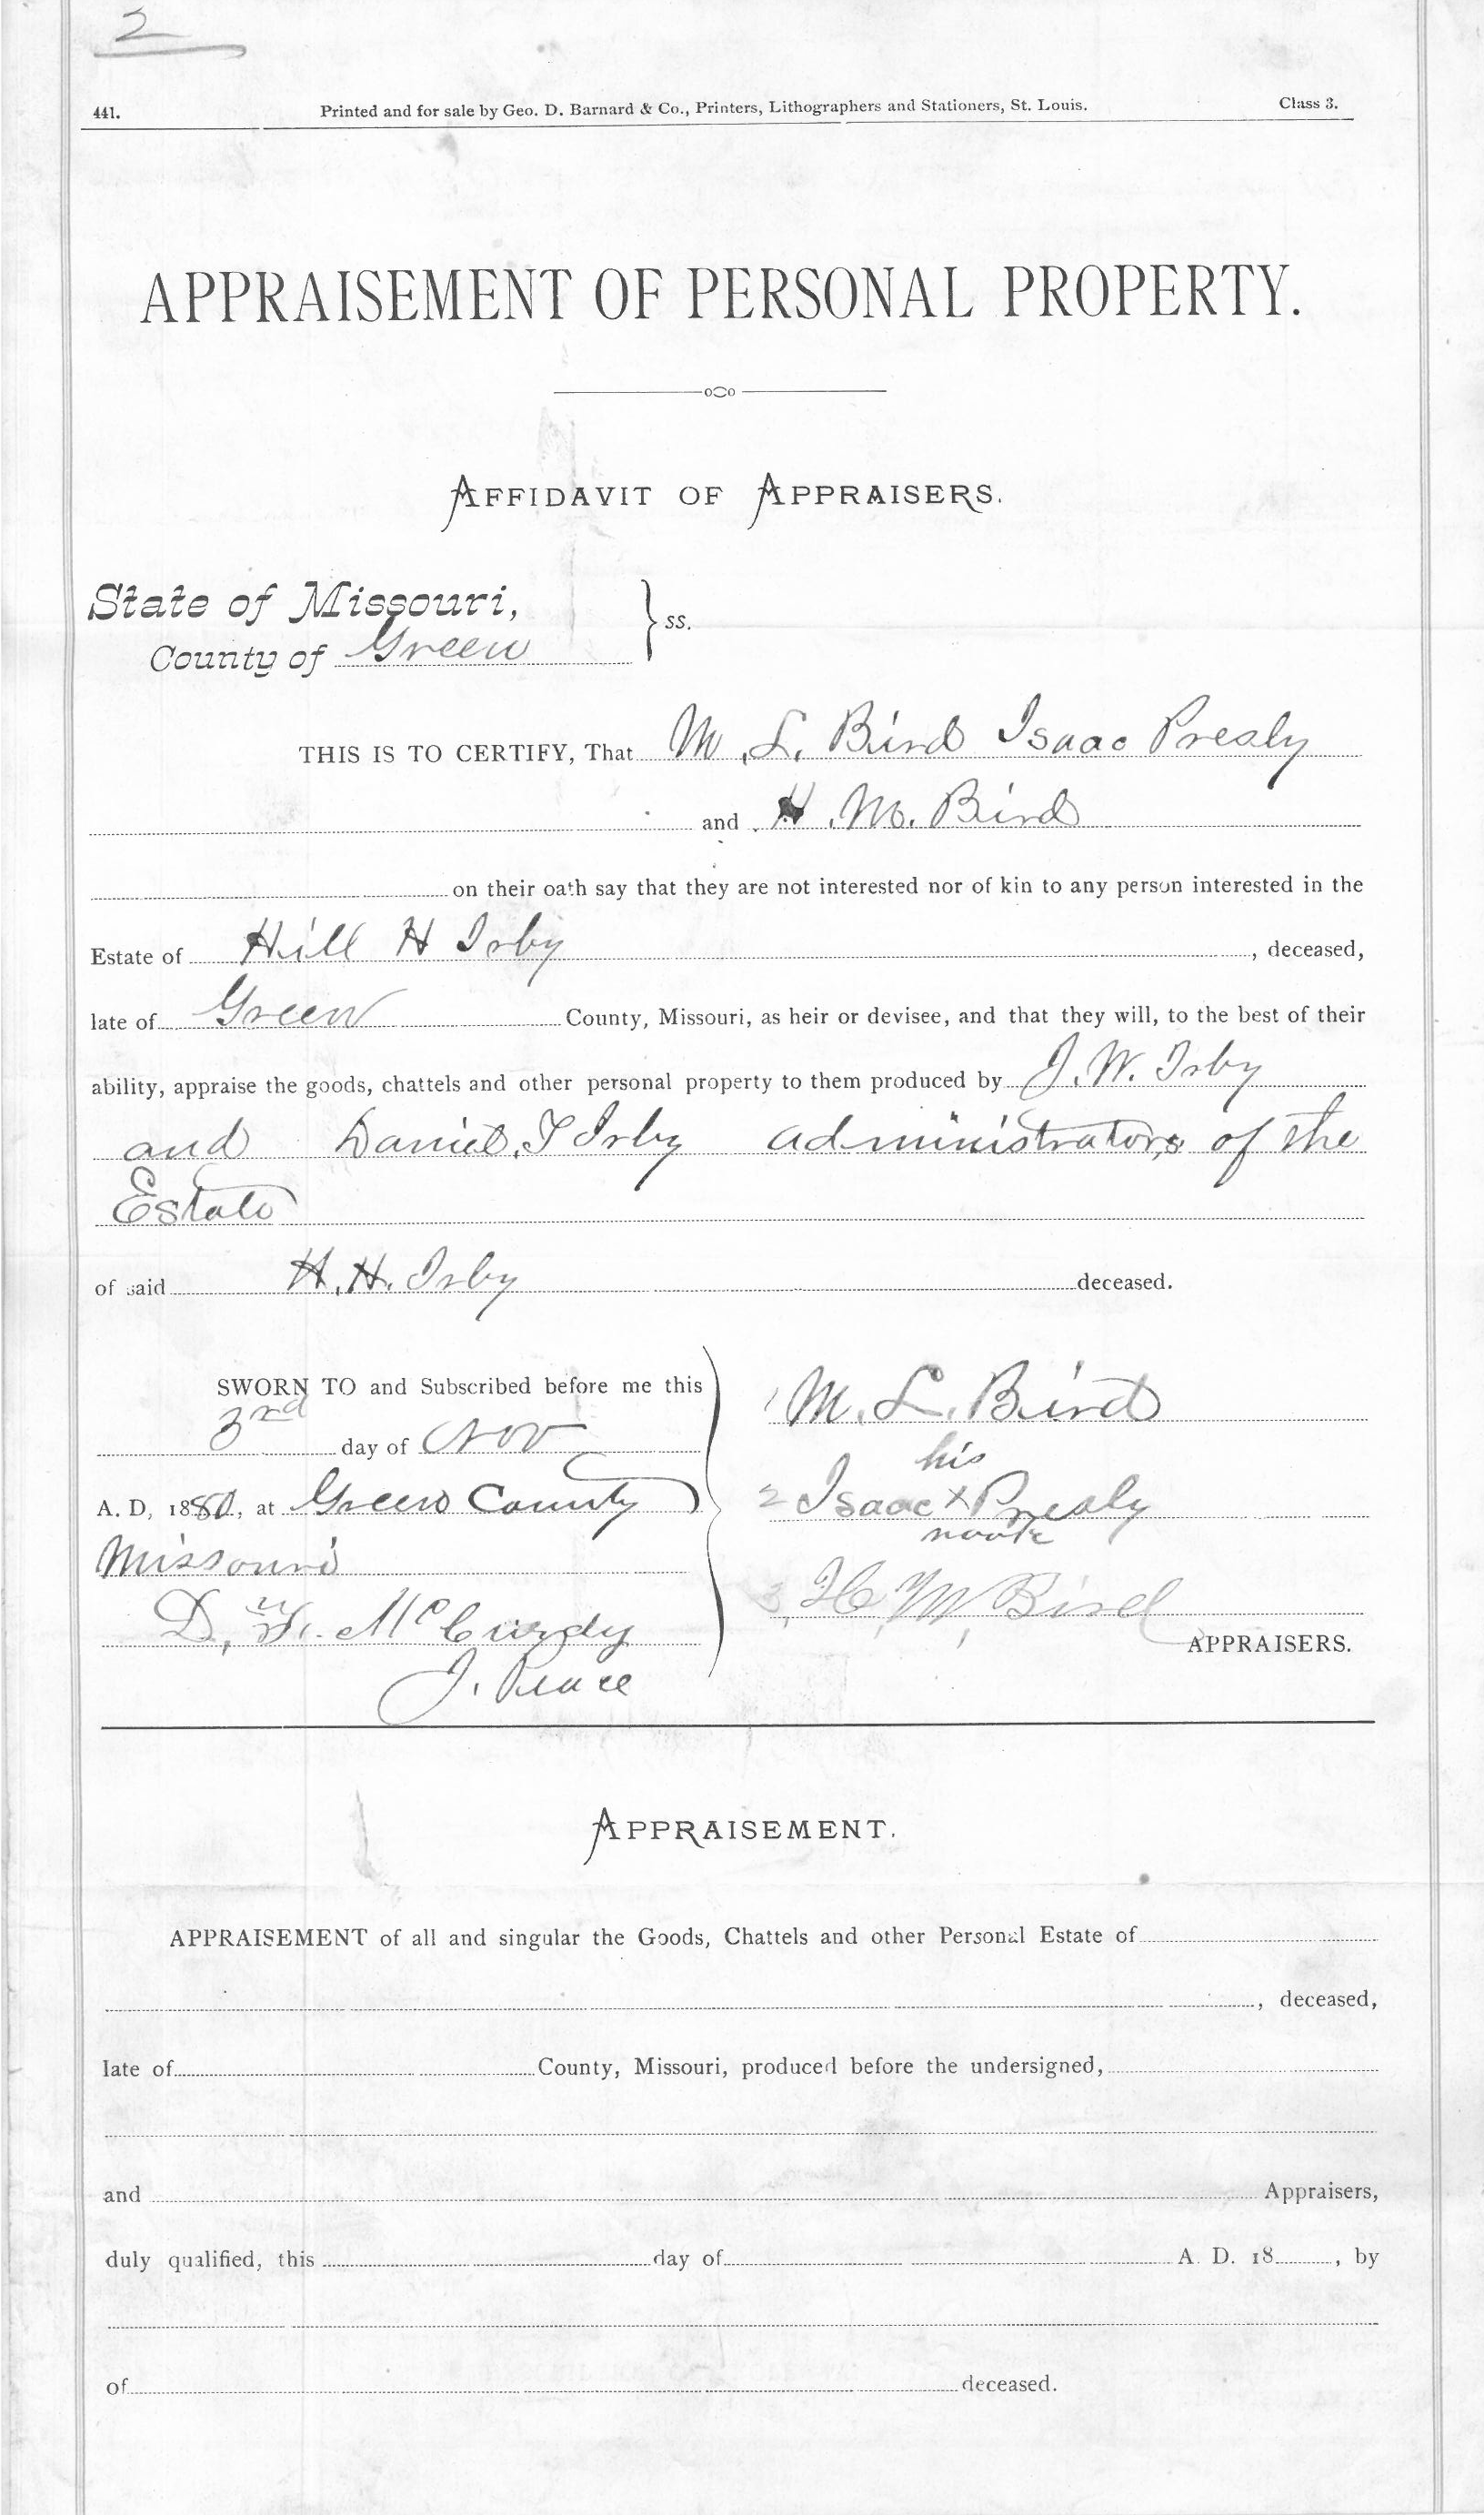 2
441. Printed and for sale by Geo. D. Barnard & Co., Printers, Lithographers and Stationers, St. Louis. Class 3.
APPRAISEMENT OF PERSONAL PROPERTY.
AFFIDAVIT OF APPRAISERS.
State of Missouri,
County of Green } ss.
THIS IS TO CERTIFY, That M. L. Bird Isaac Presly
and H. M. Bird
on their oath say that they are not interested nor of kin to any person interested in the
Estate of Hill H Irby, deceased,
late of Green County, Missouri, as heir or devisee, and that they will, to the best of their
ability, appraise the goods, chattels and other personal property to them produced by J. W. Irby
and Daniel. T Irby administrators of the
Estate
of said H. H. Irby deceased.
SWORN TO and Subscribed before me this
3rd day of Nov
A. D, 1880, at Green County
Missouri
D. McCurdy
J. Peace
1 M. L. Bird
his
2 Isaac X Presly
mark
3, H, M, Bird
APPRAISERS.
APPRAISEMENT.
APPRAISEMENT of all and singular the Goods, Chattels and other Personal Estate of
, deceased,
late of County, Missouri, produced before the undersigned,
and Appraisers,
duly qualified, this day of A. D. 18 , by
of deceased.